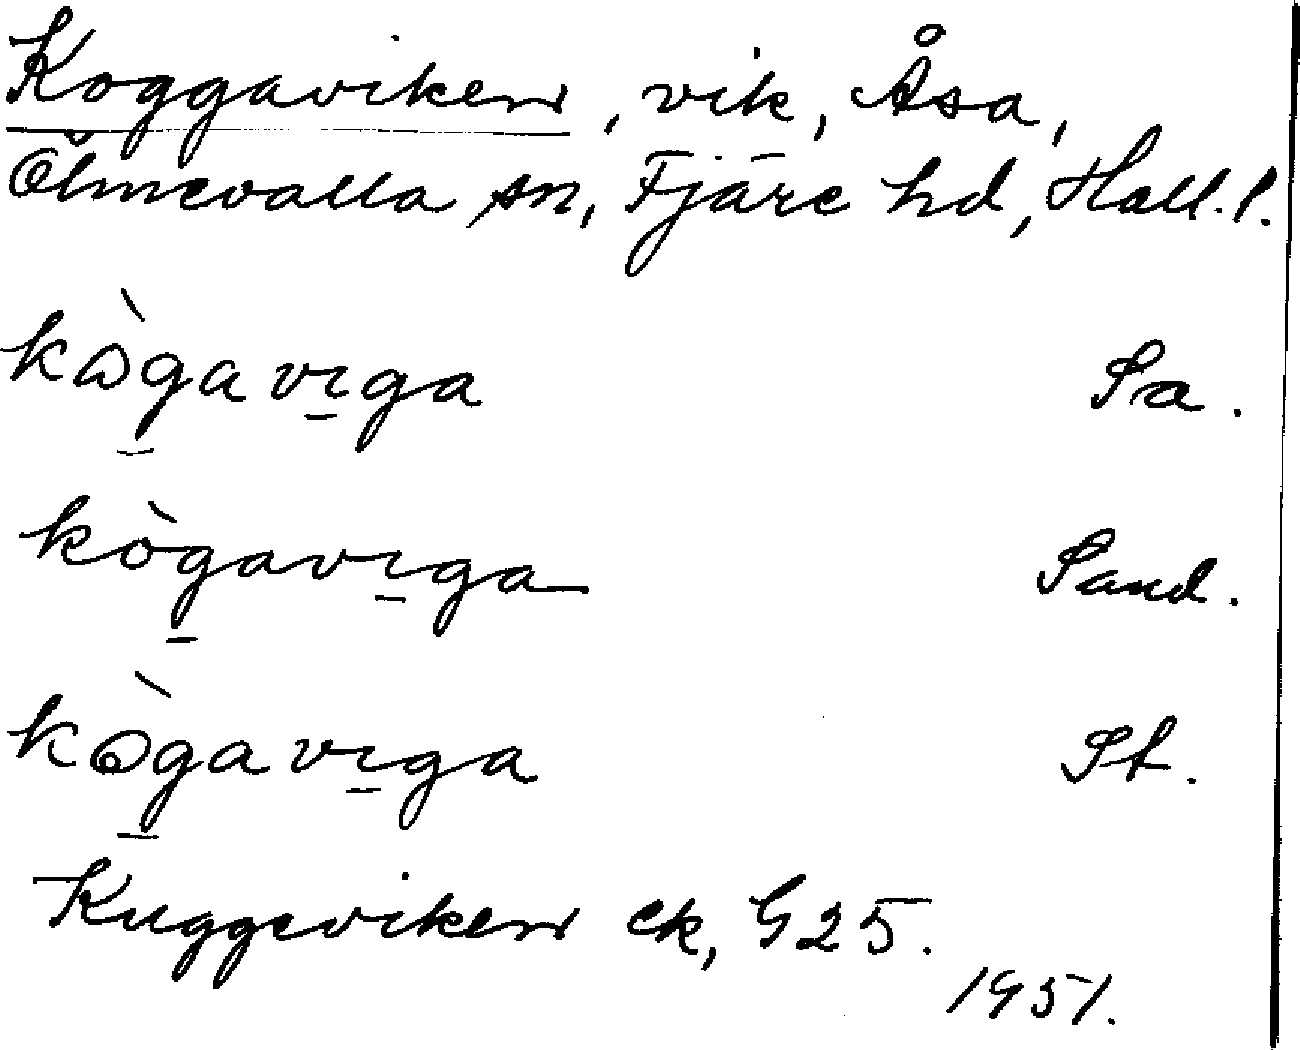 Koggaviken, vik, Åsa,
Ölmevalla sn, Fjäre hd, Hall. l.
kɷ̀g̠avı̠ga Sa.
kòg̠avı̠ga Sand.
kꝍ̀g̠avı̠ga St.
Kuggeviken ek, G25.
1951.